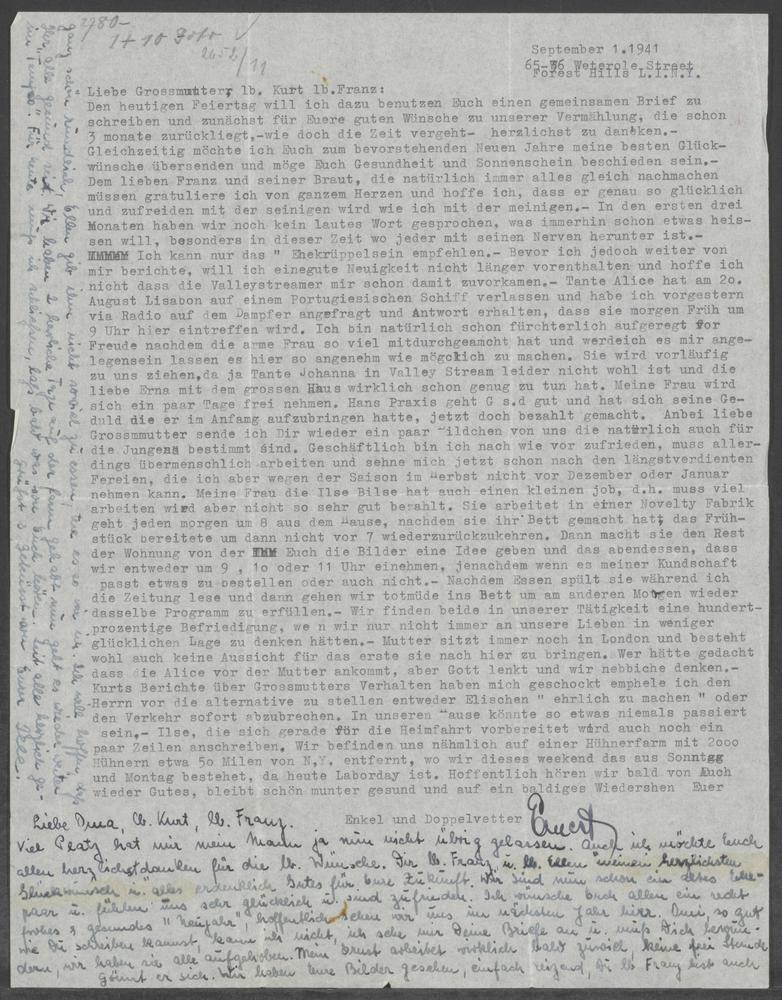 1780-
1 + 10 Foto
2652/11
September 1.1941
65-36 Weterole Street
Forest Hills L.I.N.Y.
Liebe Grossmutter, lb. Kurt lb.Franz:
Den heutigen Feiertag will ich dazu benutzen Euch einen gemeinsamen Brief zu
schreiben und zunächst für Euere guten Wünsche zu unserer Vermählung, die schon
3 monate zurückliegt,-wie doch die Zeit vergeht- herzlichst zu danken.-
Gleichzeitig möchte ich Euch zum bevorstehenden Neuen Jahre meine besten Glück-
wünsche übersenden und möge Euch Gesundheit und Sonnenschein beschieden sein.-
Dem lieben Franz und seiner Braut, die natürlich immer alles gleich nachmachen
müssen gratuliere ich von ganzem Herzen und hoffe ich, dass er genau so glücklich
und zufreiden mit der seinigen wird wie ich mit der meinigen.- In den ersten drei
Monaten haben wir noch kein lautes Wort gesprochen, was immerhin schon etwas heis-
sen will, besonders in dieser Zeit wo jeder mit seinen Nerven herunter ist.-
MMMMM Ich kann nur das " Ehekrüppelsein empfehlen.- Bevor ich jedoch weiter von
mir berichte, will ich einegute Neuigkeit nicht länger vorenthalten und hoffe ich
nicht dass die Valleystreamer mir schon damit zuvorkamen.- Tante Alice hat am 2o.
August Lisabon auf einem Portugiesischen Schiff verlassen und habe ich vorgestern
via Radio auf dem Dampfer angefragt und Antwort erhalten, dass sie morgen Früh um
9 Uhr hier eintreffen wird. Ich bin natürlich schon fürchterlich aufgeregt vor
Freude nachdem die arme Frau so viel mitdurchgeamcht hat und werdeich es mir ange-
legensein lassen es hier so angenehm wie möglich zu machen. Sie wird vorläufig
zu uns ziehen,da ja Tante Johanna in Valley Stream leider nicht wohl ist und die
liebe Erna mit dem grossen Haus wirklich schon genug zu tun hat. Meine Frau wird
sich ein paar Tage frei nehmen. Hans Praxis geht G s.d gut und hat sich seine Ge-
duld die er im Anfamg aufzubringen hatte, jetzt doch bezahlt gemacht. Anbei liebe
Grossmmutter sende ich Dir wieder ein paar Bildchen von uns die natürlich auch für
die Jungens bestimmt sind. Geschäftlich bin ich nach wie vor zufrieden, muss aller-
dings übermenschlich arbeiten und sehne mich jetzt schon nach den längstverdienten
Fereien, die ich aber wegen der Saison im Herbst nicht vor Dezember oder Januar
nehmen kann. Meine Frau die Ilse Bilse hat auch einen kleinen job, d.h. muss viel
arbeiten wird aber nicht so sehr gut bezahlt. Sie arbeitet in einer Novelty Fabrik
geht jeden morgen um 8 aus dem Hause, nachdem sie ihr Bett gemacht hat, das Früh-
stück bereitete um dann nicht vor 7 wiederzurückzukehren. Dann macht sie den Rest
der Wohnung von der MMM Euch die Bilder eine Idee geben und das abendessen, dass
wir entweder um 9 , 1o oder 11 Uhr einehmen, jenachdem wenn es meiner Kundschaft
passt etwas zu bestellen oder auch nicht.- Nachdem Essen spült sie während ich
die Zeitung lese und dann gehen wir totmüde ins Bett um am anderen Morgen wieder
dasselbe Programm zu erfüllen.- Wir finden beide in unserer Tätigkeit eine hundert-
prozentige Befriedigung, we n wir nur nicht immer an unsere Lieben in weniger
glücklichen Lage zu denken hätten.- Mutter sitzt immer noch in London und besteht
wohl auch keine Aussicht für das erste sie nach hier zu bringen. Wer hätte gedacht
dass die Alice vor der Mutter ankommt, aber Gott lenkt und wir nebbiche denken.-
Kurts Berichte über Grossmutters Verhalten haben mich geschockt emphele ich den
Herrn vor die alternative zu stellen entweder Elischen " ehrlich zu machen " oder
den Verkehr sofort abzubrechen. In unseren Hause könnte so etwas niemals passiert
sein,- Ilse, die sich gerade für die Heimfahrt vorbereitet wird auch noch ein
paar Zeilen anschreiben. Wir befinden uns nähmlich auf einer Hühnerfarm mit 2ooo
Hühnern etwa 5o Milen von N,Y. entfernt, wo wir dieses weekend das aus Sonntag
und Montag bestehet, da heute Laborday ist. Hoffentlich hören wir bald von Euch
wieder Gutes, bleibt schön munter gesund und auf ein baldiges Wiedershen Euer
Enkel und Doppelvetter
Ernest
Liebe Oma, lb. Kurt, lb. Franz.
Viel Platz hat mir mein Mann ja nun nicht übrig gelassen. Auch ich möchte Euch
allen herzlichst danken für die lb. Wünsche. Dir lb. Franz u. lb. Ellen meinen herzlichsten
Glückwunsch u. alles erdenklich Gutes für Eure Zukunft. Wir sind nun schon ein altes Ehe-
paar u. fühlen uns sehr glücklich u. sind zufrieden. Ich wünsche Euch allen ein recht
frohes & gesundes "Neujahr", hoffentlich sehen wir uns im nächsten Jahr hier. Omi, so gut
wie Du schreiben kannst, kann ich nicht, ich sehe mir Deine Briefe an u. muß Dich bewun-
dern, wir haben sie alle aufgehoben. Mein Ernst arbeitet wirklich bald zuviel, keine frei Stunde
gönnt er sich. Wir haben Eure Bilder gesehen, einfach reizend, Du lb. Franz bist auch
ganz schön rundlich, Ellen gib ihm nicht soviel zu essen,
hier, alle gesund sind. Wir haben 2 herrliche Tage auf der Farm gehabt, nun geht es wieder weiter
im "Tempo". Für heute muß ich schließen, laßt bald was von Euch hören. Seid alle herzlich ge-
grüßt & geküsst von Eurer Ilse.